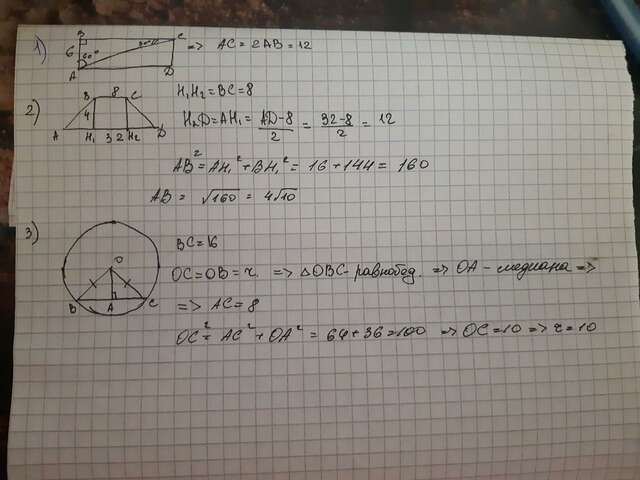 1) B C 6 60° 30° A D => AC = 2AB = 12
2) B 8 C 4 A H₁ 32 H₂ D
H₁H₂ = BC = 8
H₂D = AH₁ = (AD-8)/2 = (32-8)/2 = 12
AB² = AH₁² + BH₁² = 16 + 144 = 160
AB = √160 = 4√10
3) O B A C
BC = 16
OC = OB = r. => △OBC - равнобед. => OA - медиана =>
=> AC = 8
OC² = AC² + OA² = 64 + 36 = 100 => OC = 10 => r = 10